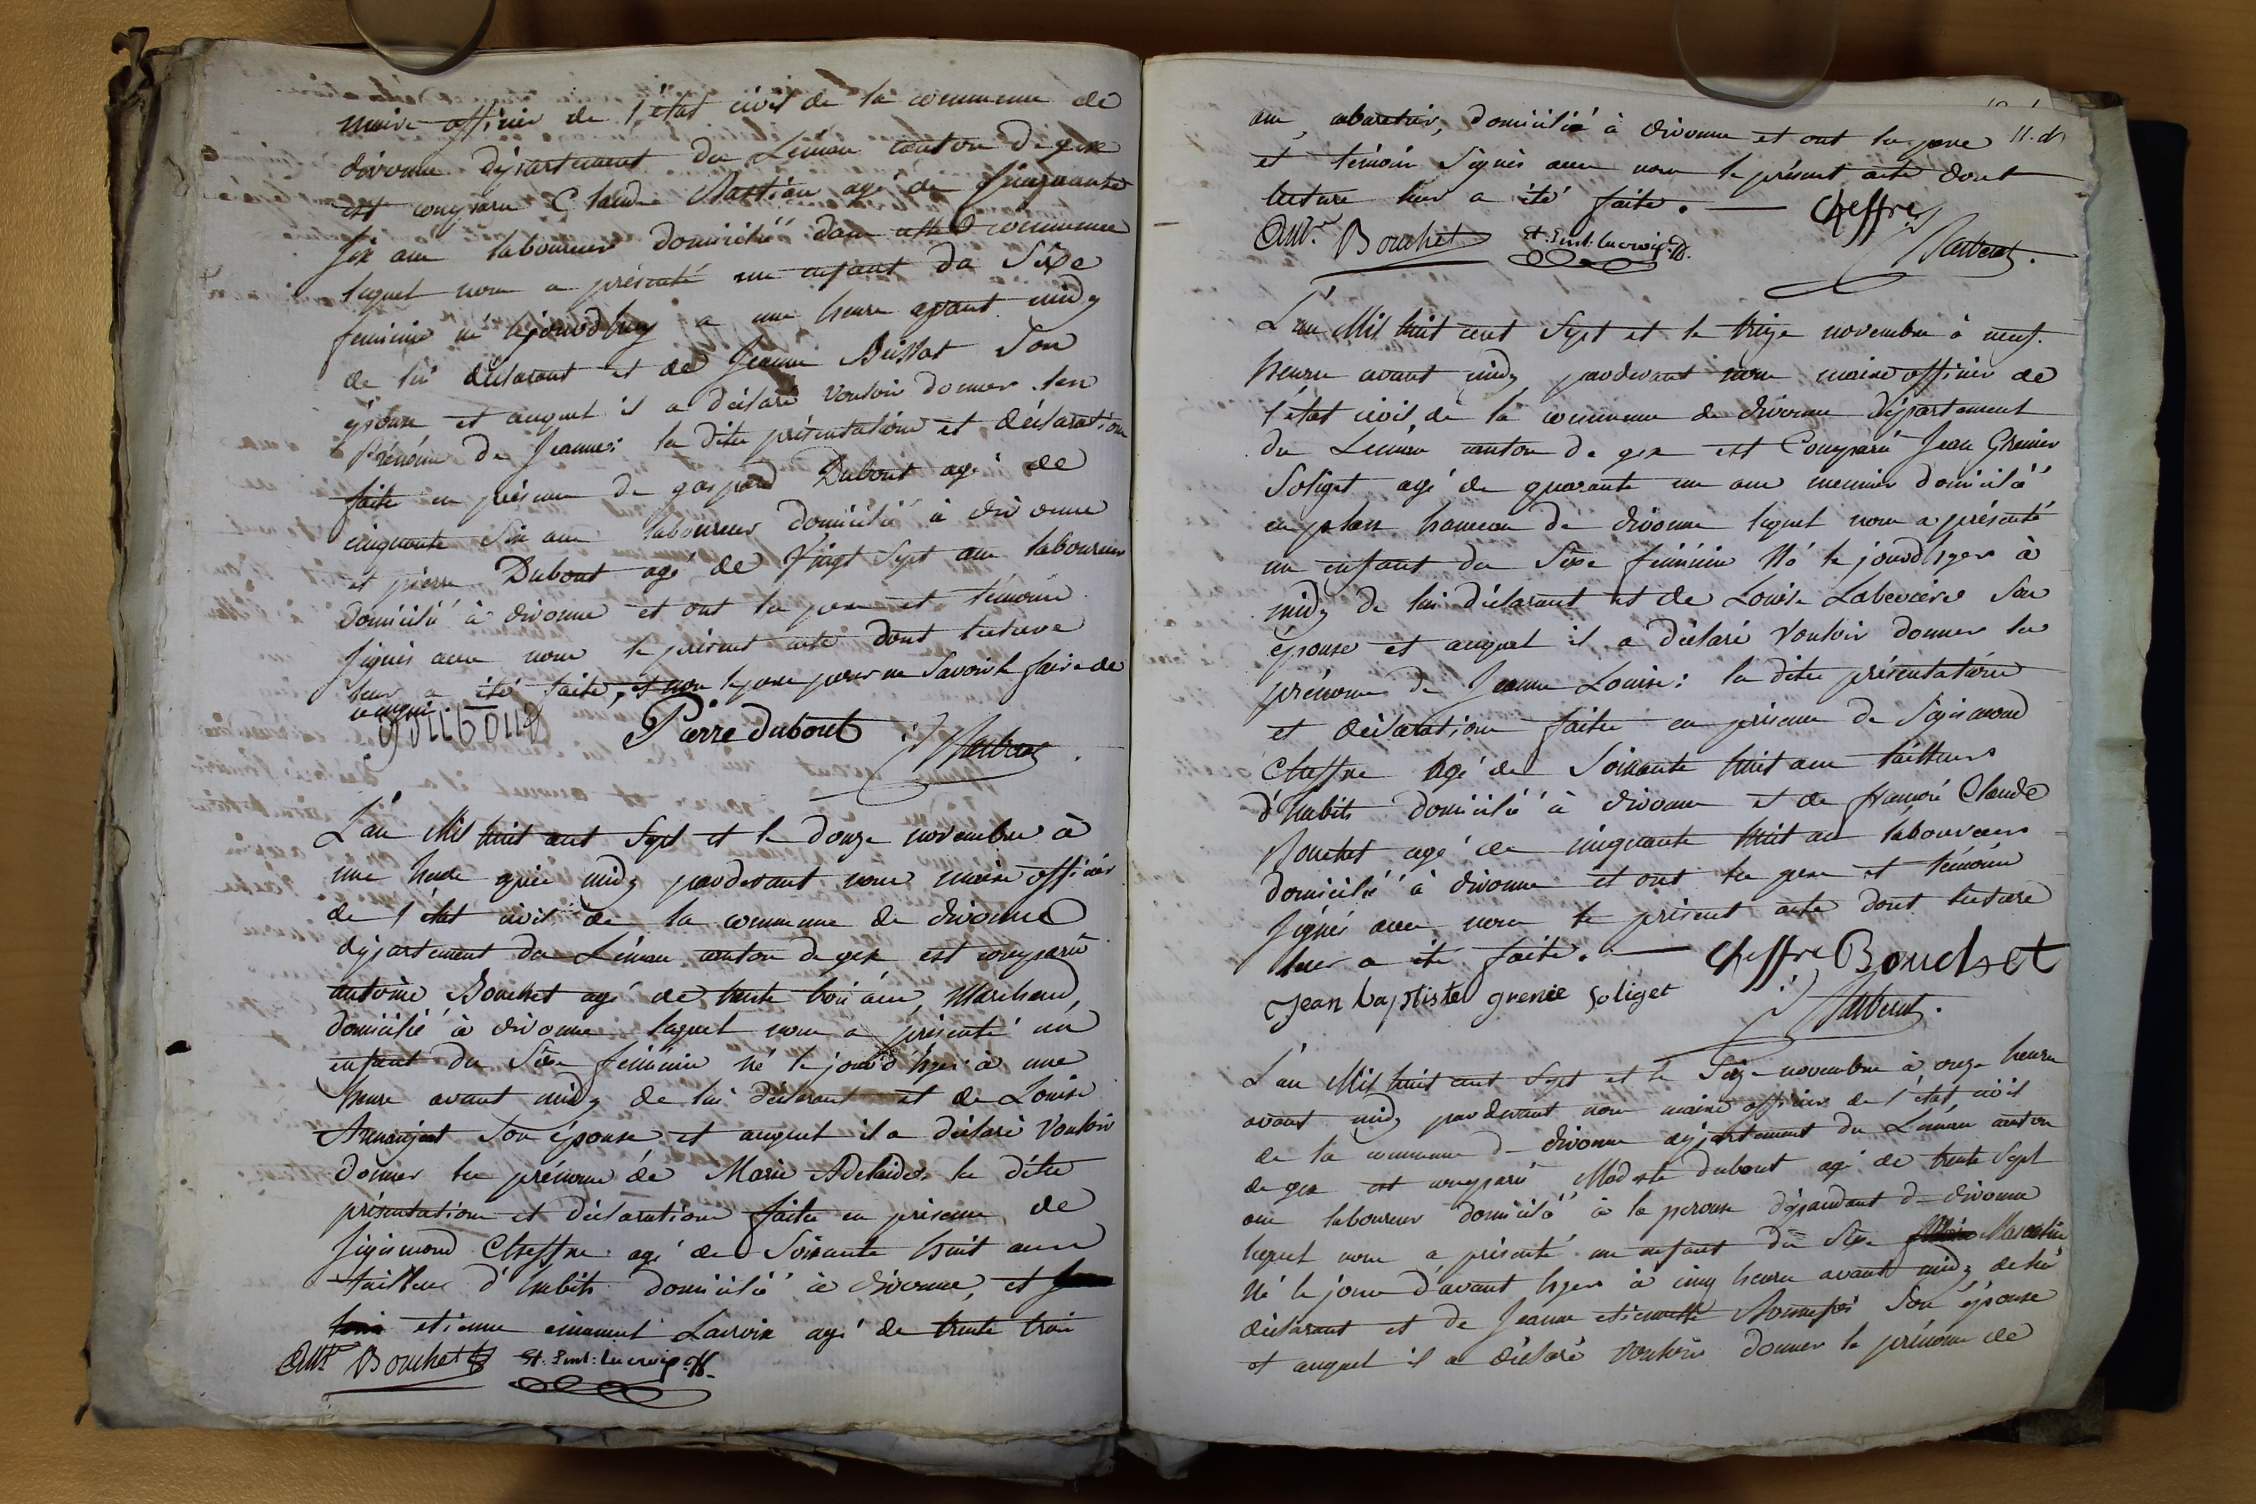 maire officier de l'état civil de la commune de
divonne département du Léman canton de gex
est comparu Claude Bastian agé de cinquante
six ans laboureur domicilié dans cette commune
lequel nous a présenté un enfant du Sèxe
feminin né le jourd'huy a une heure avant midy
de lui déclarant et de Jeanne Son
épouse et auquel il a déclaré vouloir donner les
Prénoms de Jeanne: la dite présentation et déclaration
faite en présence de gaspard Dubout agé de
cinquante Six ans laboureur domicilié à divonne
et pierre Dubout agé de Vingt Sept ans laboureur
domicilié à divonne et ont les pere et témoins
signés avec nous le présent acte dont lecture
leur a été faite, et non le pere pour ne Savoir le faire de
ce enquis
Pierre dubout
L'an Mil huit cent Sept et le douze novembre à
une heure après midy pardevant nous maire officier
de l'état civil de la commune de divonne
département du Léman canton de gex est comparu
antoine Bouchet agé de trente trois ans, Marchand,
domicilié à divonne lequel nous a présenté un
enfant du Séxe feminin né le jourd'hyer à une
heure avant midy de lui déclarant et de Louise
Son épouse et auquel il a déclaré vouloir
donner les prénoms de Marie Adelaide, la dite
présentation et déclaration faite en présence de
Sigismond Cheffre agé de Soixante huit ans
tailleur d'habits domicilié à divonne, et
etienne emanuel Lacroix agé de trente trois
Ant.e Bouchet Et. Eml: Lacroix
ans, cabaretier, domicilié à divonne et ont les pere
et témoins Signés avec nous le présent acte dont
lecture leur a été faite. — Cheffre
Ant.e Bouchet Et. Eml: Lacroix
L'an Mil huit cent Sept et le treize novembre à neuf
heures avant midy pardevant nous maire officier de
l'état civil de la commune de divonne département
du Léman canton de gex est Comparu Jean Grenier
Soliget agé de quarante un ans meunier domicilié
en plan hameau de divonne lequel nous a présenté
un enfant du Séxe feminin Né le jourd'hyer à
midy de lui déclarant et de Louise Son
épouse et auquel il a déclaré Vouloir donner les
prénoms de Jeanne Louise: la dite présentation
et déclaration faite en présence de Sigismond
Cheffre Agé de Soixante huit ans tailleur
d'habits domicilié à divonne et de françois Claude
Bouchet agé de cinquante huit ans laboureur
domicilié à divonne et ont les pere et témoins
signés avec nous le présent acte dont lecture
leur a été faite. — Cheffre Bouchet
Jean baptiste grenié Soliget
L'an Mil huit cent Sept et le Seize novembre à onze heures
avant midy pardevant nous maire officier de l'état civil
de la commune de divonne département du Léman canton
de gex est comparu Modeste dubout agé de trente Sept
ans laboureur domicilié à la perouse dépandant de divonne
lequel nous a présenté un enfant du Séxe Masculin
Né le jour d'avant hyer à cinq heures avant midy de lui
déclarant et de Jeanne etiennette Son épouse
et auquel il a déclaré vouloir donner le prénom de